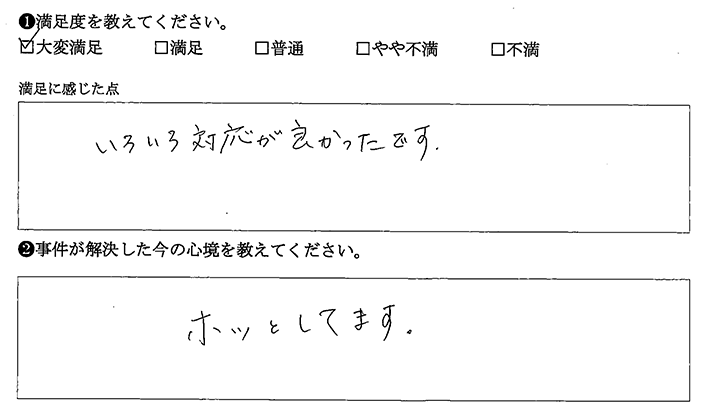 ❶満足度を教えてください。
☑大変満足 □満足 □普通 □やや不満 □不満
満足に感じた点
いろいろ対応が良かったです.
❷事件が解決した今の心境を教えてください。
ホッとしてます。